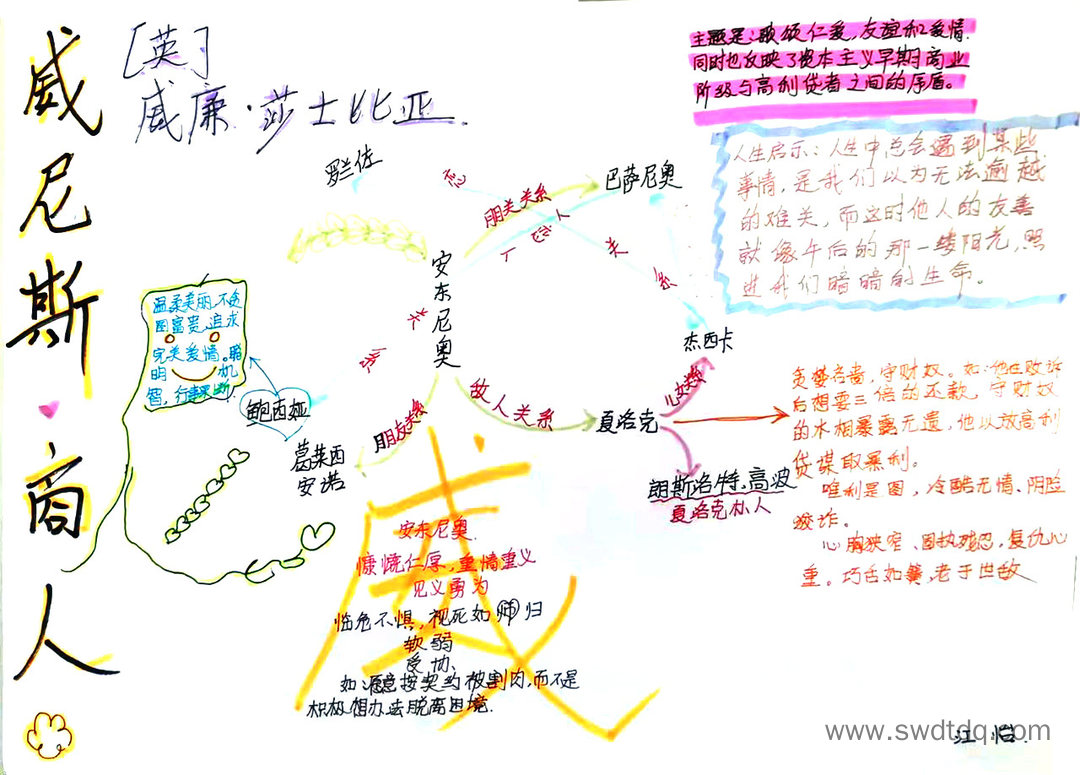 威尼斯商人
[英]
威廉·莎士比亚
主题是:歌颂仁爱,友谊和爱情.
同时也反映了资本主义早期商业
阶级与高利贷者之间的矛盾。
人生启示:人生中总会遇到某些
事情,是我们以为无法逾越
的难关,而这时他人的友善
就像午后的那一缕阳光,照
进我们暗暗的生命。
罗兰佐
恋人关系
朋友关系
巴萨尼奥
安东尼奥
杰西卡
温柔美丽,不贪
图富贵,追求
完美爱情。聪
明 机
智,行事果断.
鲍西娅
关系
朋友关系
葛莱西
安诺
敌人关系
夏洛克
父女关系
朗斯洛特.高波
夏洛克仆人
贪婪吝啬,守财奴。如:他在败诉
后想要三倍的还款,守财奴
的水相暴露无遗,他以放高利
贷谋取暴利。
唯利是图,冷酷无情、阴险
狡诈。
心胸狭窄、固执残忍,复仇心
重。巧舌如簧,老于世故
威
安东尼奥.
慷慨仁厚,重情重义
见义勇为
临危不惧,视死如师归
软弱
受协、
如:愿意按契约被割肉,而不是
积极想办法脱离困境.
江怡.
www.swdtdq.com